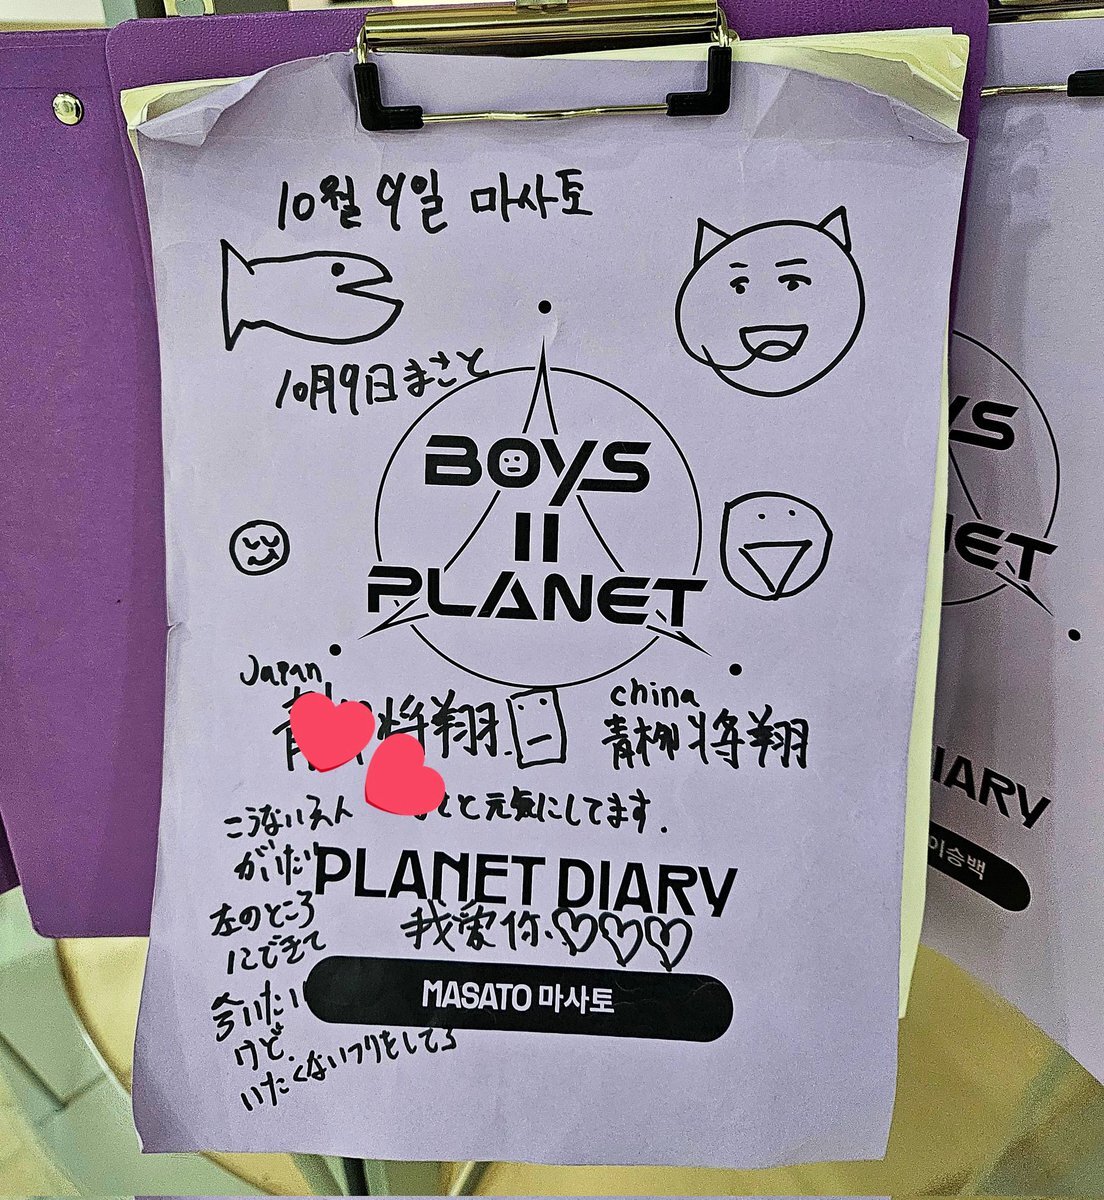 10월 9일 마사토
10月9日 まさと
BOYS
II
PLANET
Japan
将翔
china
青栁将翔
こうないえん
がいたい
左のところ
にできて
今いたい
けど.
いたくないフリをしてる
と元気にしてます.
PLANET DIARY
我爱你.♡♡♡
MASATO 마사토
YS
NET
IARY
이승백